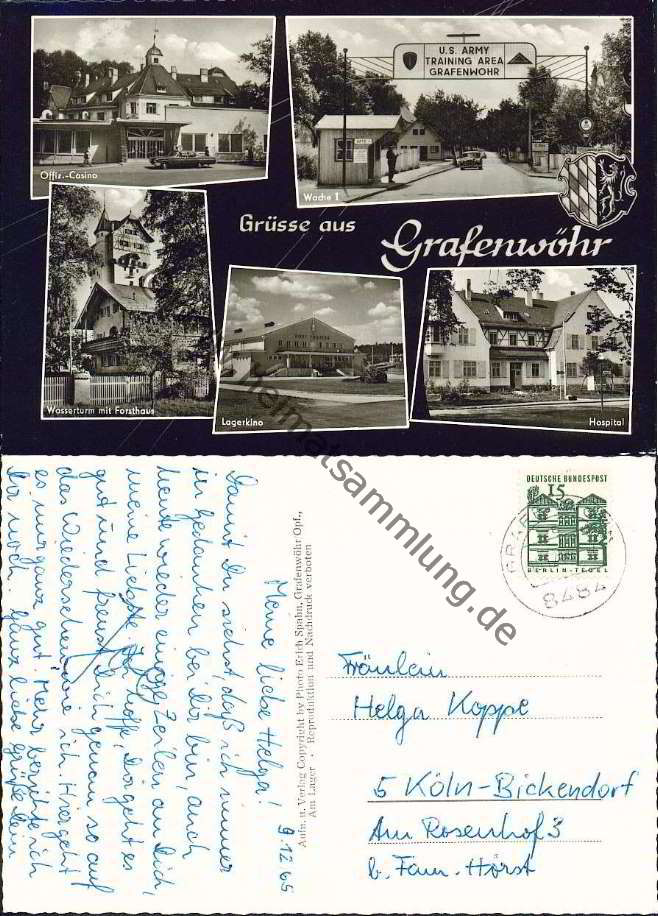 U.S. ARMY
TRAINING AREA
GRAFENWOHR
Offiz.-Casino
Wache 1
Grüsse aus
Grafenwöhr
Wasserturm mit Forsthaus
Lagerkino
Hospital
heimatsammlung.de
9.12.65
Meine liebe Helga!
Damit Du siehst, daß ich immer
in Gedanken bei Dir bin, auch
heute wieder einige Zeilen an Dich,
meine Liebste. Ich hoffe, Dir geht es
gut und freust Dich genau so auf
das Wiedersehen wie ich. Hier geht
es mir ganz gut. Mehr berichte ich
Dir noch. Ganz liebe Grüße Dein
Aufn. u. Verlag Copyright by Photo Erich Spahn, Grafenwöhr Opf.,
Am Lager · Reproduktion und Nachdruck verboten
DEUTSCHE BUNDESPOST
15
BERLIN-TEGEL
8484
Fräulein
Helga Koppe
5 Köln-Bickendorf
Am Rosenhof 3
b. Fam. Hörst